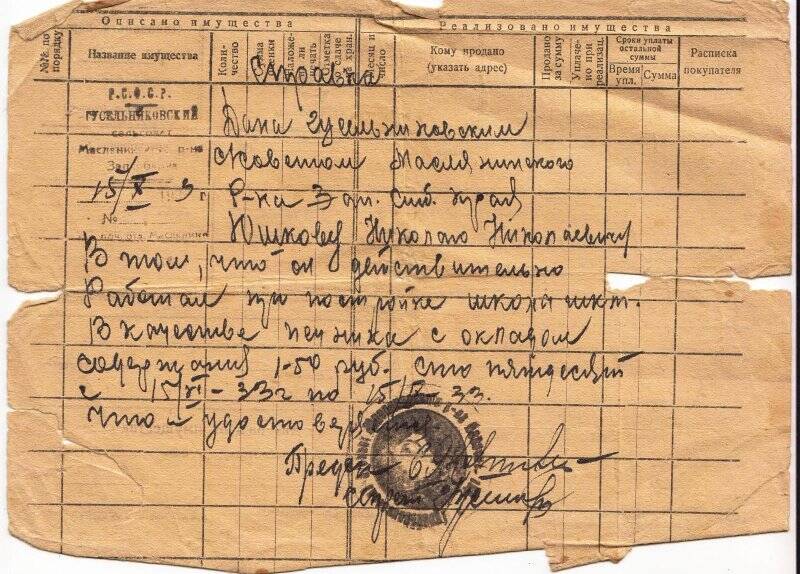 Описано имущества
Реализовано имущества
№№ по порядку
Название имущества
Количество
Сумма оценки
Наложена ли печать
Отметка о сдаче на хран.
Месяц и число
Кому продано (указать адрес)
Продано за сумму
Уплачено при реализац.
Сроки уплаты остальной суммы
Время упл.
Сумма
Расписка покупателя
Справка
Р.С.Ф.С.Р.
ГУСЕЛЬНИКОВСКИЙ
сельсовет
15/X 3 г
№
Дана Гусельниковским
Советом Маслянинского
Р-на Зап. Сиб. края
Юшкову Николаю Николаевичу
В том, что он действительно
Работал при постройке школа шкм.
В качестве печника с окладом
содержания 150 руб. сто пятдесят
с 15/VI-33г по 15/ -33.
Что и удостоверяется
Предсп
Секрет